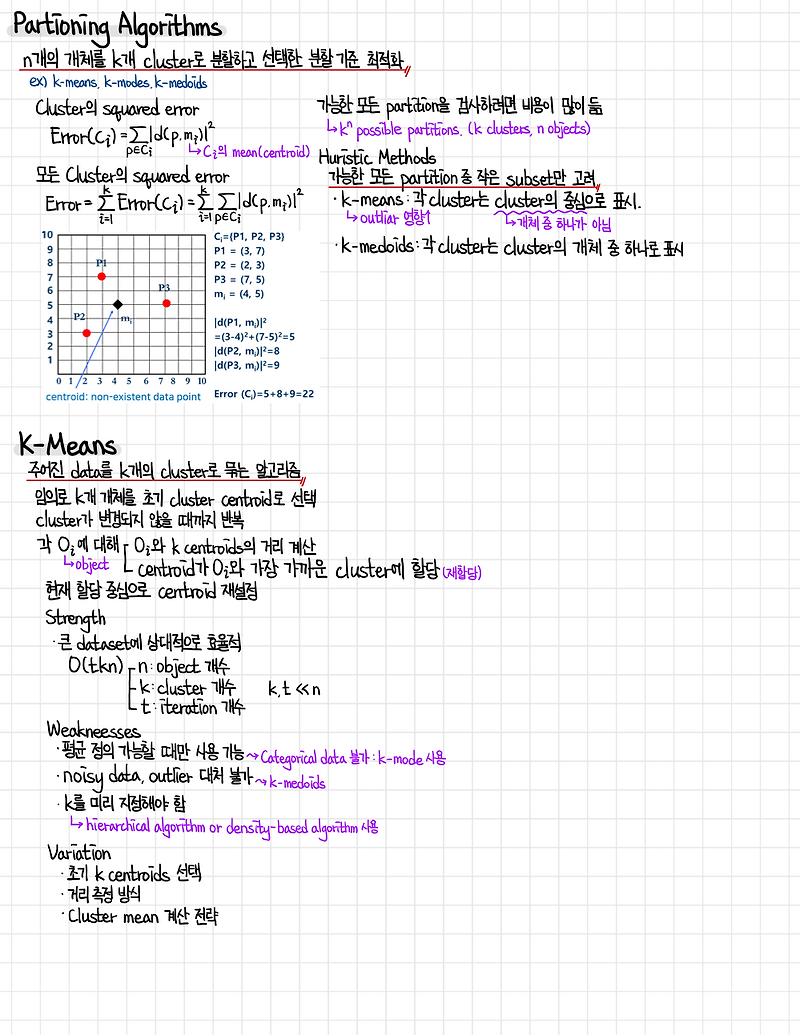 Partioning Algorithms
n개의 개체를 k개 cluster로 분할하고 선택한 분할 기준 최적화
ex) k-means, k-modes, k-medoids
Cluster의 squared error
Error(Cᵢ) = ∑p∈Cᵢ |d(p, mᵢ)|²
↳ Cᵢ의 mean(centroid)
모든 Cluster의 squared error
Error = ∑ᵢ₌₁ᵏ Error(Cᵢ) = ∑ᵢ₌₁ᵏ ∑p∈Cᵢ |d(p, mᵢ)|²
10
9
8
7
6
5
4
3
2
1
0 1 2 3 4 5 6 7 8 9 10
P1
P2
P3
mᵢ
centroid: non-existent data point
Cᵢ={P1, P2, P3}
P1 = (3, 7)
P2 = (2, 3)
P3 = (7, 5)
mᵢ = (4, 5)
|d(P1, mᵢ)|²
=(3-4)²+(7-5)²=5
|d(P2, mᵢ)|²=8
|d(P3, mᵢ)|²=9
Error (Cᵢ)=5+8+9=22
가능한 모든 partition을 검사하려면 비용이 많이 듦
↳ kⁿ possible partitions. (k clusters, n objects)
Huristic Methods
가능한 모든 partition 중 작은 subset만 고려
· k-means : 각 cluster는 cluster의 중심으로 표시.
↳ outliar 영향↑
↳ 개체 중 하나가 아님
· k-medoids : 각 cluster는 cluster의 개체 중 하나로 표시
K-Means
주어진 data를 k개의 cluster로 묶는 알고리즘
임의로 k개 개체를 초기 cluster centroid로 선택
cluster가 변경되지 않을 때까지 반복
각 Oᵢ에 대해 Oᵢ와 k centroids의 거리 계산
↳ object
centroid가 Oᵢ와 가장 가까운 cluster에 할당 (재할당)
현재 할당 중심으로 centroid 재설정
Strength
· 큰 dataset에 상대적으로 효율적
O(tkn) n : object 개수
k : cluster 개수 k, t << n
t : iteration 개수
Weakneesses
· 평균 정의 가능할 때만 사용 가능 ⇝ Categorical data 불가 : k-mode 사용
· noisy data, outlier 대처 불가 ⇝ k-medoids
· k를 미리 지정해야 함
↳ hierarchical algorithm or density-based algorithm 사용
Variation
· 초기 k centroids 선택
· 거리 측정 방식
· Cluster mean 계산 전략